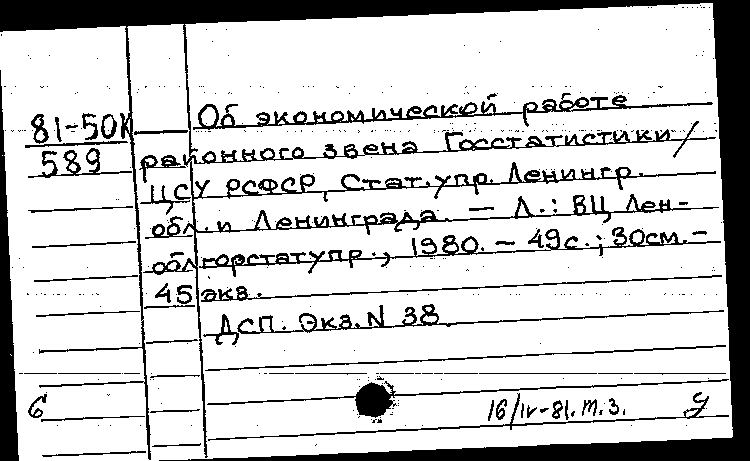 81-50К
589
Об экономической работе
районного звена Госстатистики/
ЦСУ РСФСР, Стат.упр. Ленингр.
обл. и Ленинграда. — Л.: ВЦ Лен-
облгорстатупр., 1980. – 49с.; 30см. –
45 экз.
ДСП. Экз. N 38.
6
16/IV-81. т.з.